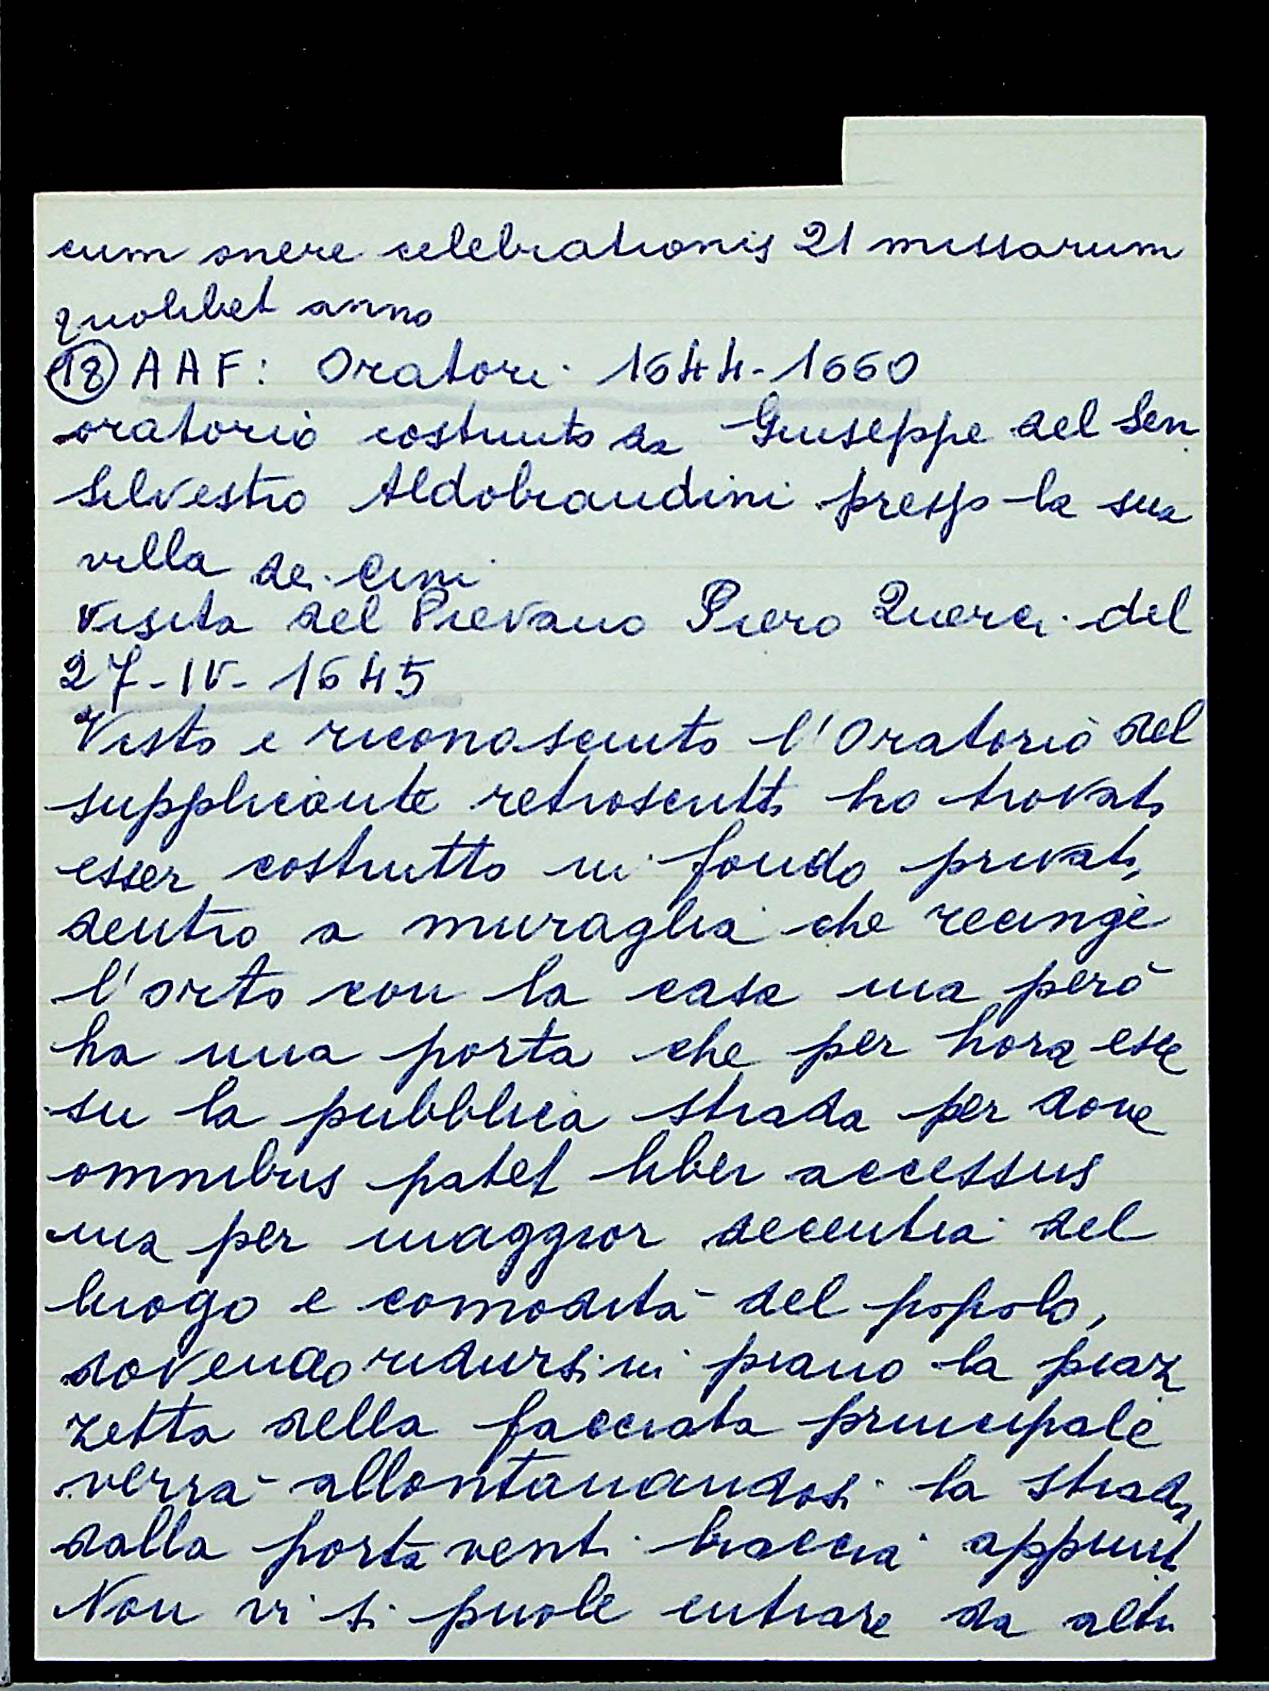 cum onere celebrationis 21 missarum
quolibet anno
18 AAF: Oratori 1644-1660
oratorio costruito da Giuseppe del Sen
Silvestro Aldobrandini presso la sua
villa de Cini
Visita del Pievano Piero Querci del
27-IV-1645
Visto e riconosciuto l'Oratorio del
supplicante retroscritto ho trovato
esser costrutto in fondo privato,
dentro a muraglia che recinge
l'orto con la casa ma però
ha una porta che per hora esce
su la pubblica strada per dove
omnibus patet liber accessus
ma per maggior decentia del
luogo e comodità del popolo,
dovendo ridursi in piano la piaz
zetta della facciata principale
verrà allontanandosi la strada
dalla porta venti braccia appunto
Non vi si puole entrare da altri